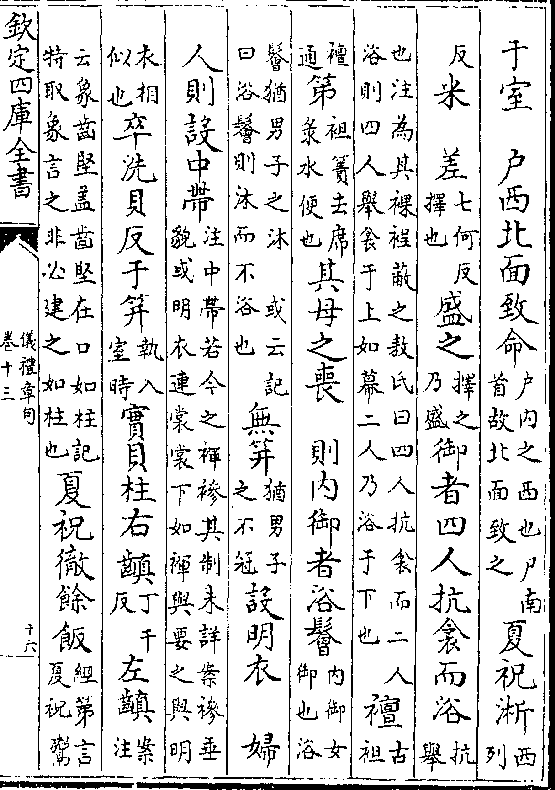 于室　户西北面致命户内之西也尸南首故北面致之夏祝淅西列
反米　差七何反擇也盛之擇之乃盛御者四人抗衾而浴抗舉
也注為其裸裎蔽之敖氏曰四人抗衾而二人浴則四人舉衾于上如幕二人乃浴于下也襢古袒
襢通第袒簀去席盝水便也其母之喪　則内御者浴鬠内御女御也浴
鬠猶男子之沐　或云記曰浴鬠則沐而不浴也無笄猶男子之不冠設明衣　婦
人則設中帶注中帶若今之褌襂其制未詳案襂垂貌或明衣連裳裳下如褌與要之與明
衣相似也卒洗貝反于笄執入室時實貝柱右齻丁千反左齻案注
云象齒堅蓋齒堅在口如柱記特取象言之非必建之如柱也夏祝徹餘飯經第言夏祝鬻
欽定四庫全書
儀禮章句
卷十三
十六